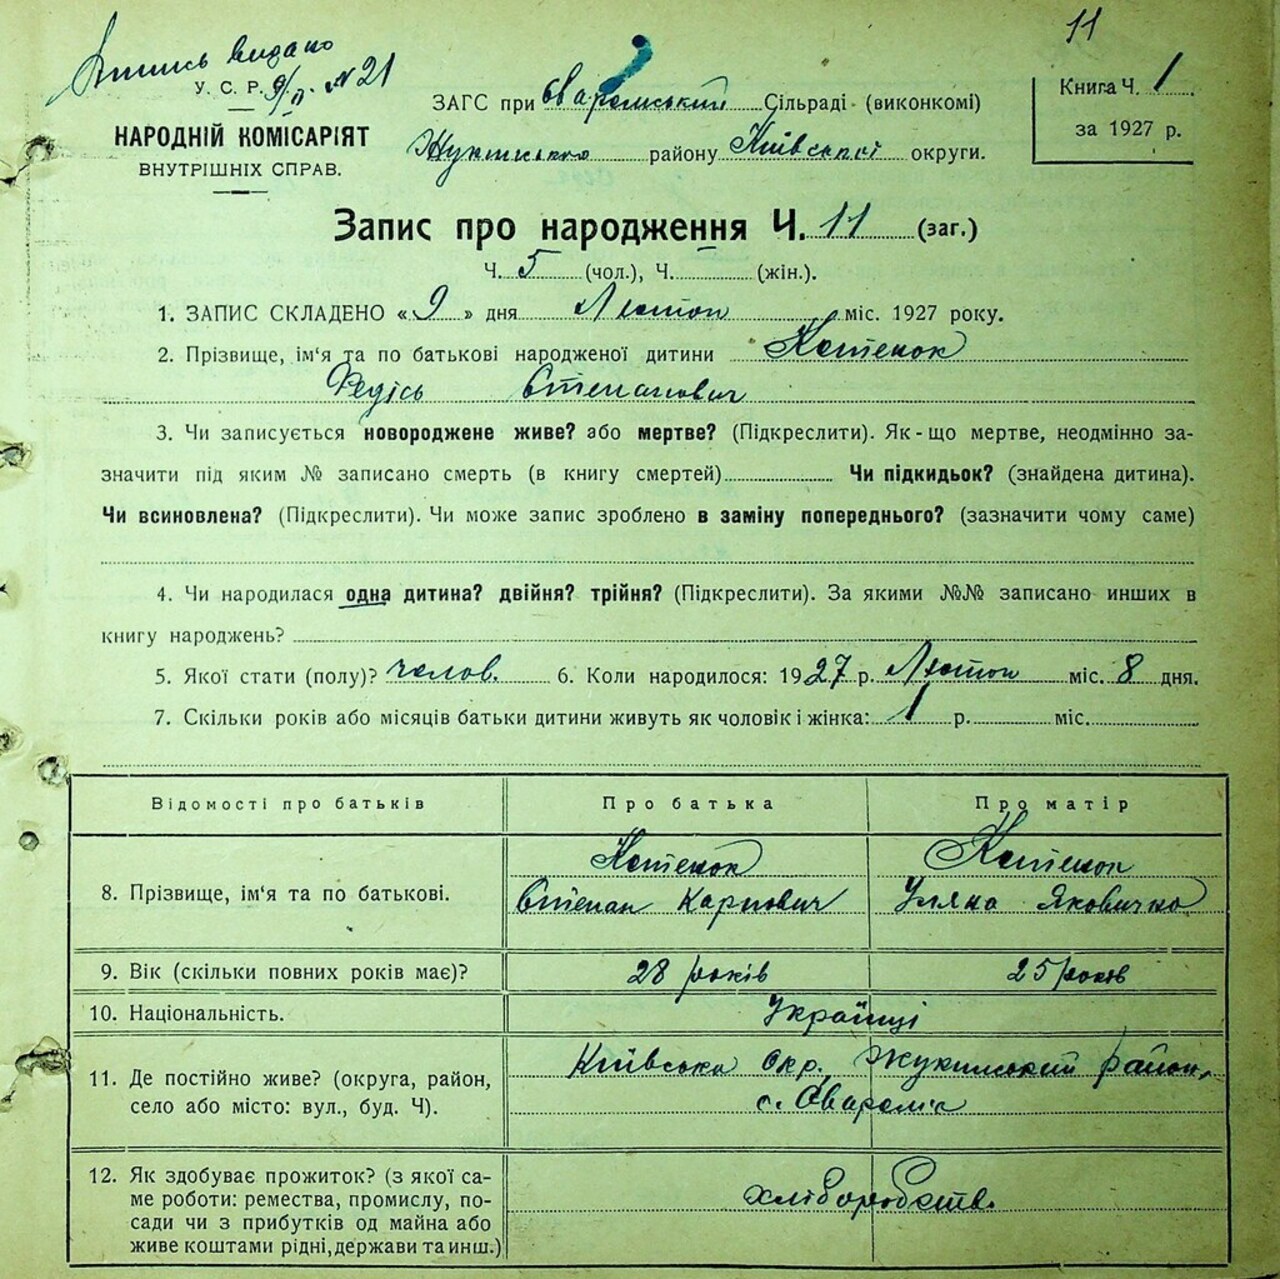 11
Выпись видано
9/II. № 21
У. С. Р. Р.
НАРОДНІЙ КОМІСАРІЯТ
ВНУТРІШНІХ СПРАВ.
ЗАГС при Сваромський Сільраді (виконкомі)
Жукинського району Київської округи.
Книга Ч. 1
за 1927 р.
Запис про народження Ч. 11 (заг.)
Ч. 5 (чол.), Ч. (жін.).
1. ЗАПИС СКЛАДЕНО «9» дня Лютоп міс. 1927 року.
2. Прізвище, ім'я та по батькові народженої дитини Котенок
Федісь Степанович
3. Чи записується новороджене живе? або мертве? (Підкреслити). Як-що мертве, неодмінно за-
значити під яким № записано смерть (в книгу смертей) Чи підкидьок? (знайдена дитина).
Чи всиновлена? (Підкреслити). Чи може запис зроблено в заміну попереднього? (зазначити чому саме)
4. Чи народилася одна дитина? двійня? трійня? (Підкреслити). За якими №№ записано инших в
книгу народжень?
5. Якої стати (полу)? челов. 6. Коли народилося: 1927 р. Лютоп міс. 8 дня.
7. Скільки років або місяців батьки дитини живуть як чоловік і жінка: 1 р. міс.
Відомості про батьків Про батька Про матір
8. Прізвище, ім'я та по батькові. Котенок Степан Карпович Котенок Уляна Яковична
9. Вік (скільки повних років має)? 28 років 25 років
10. Національність. Українці
11. Де постійно живе? (округа, район,
село або місто: вул., буд. Ч). Київська окр., Жукинський район,
с. Сваромье
12. Як здобуває прожиток? (з якої са-
ме роботи: ремества, промислу, по-
сади чи з прибутків од майна або
живе коштами рідні, держави та инш.) хліборобств.